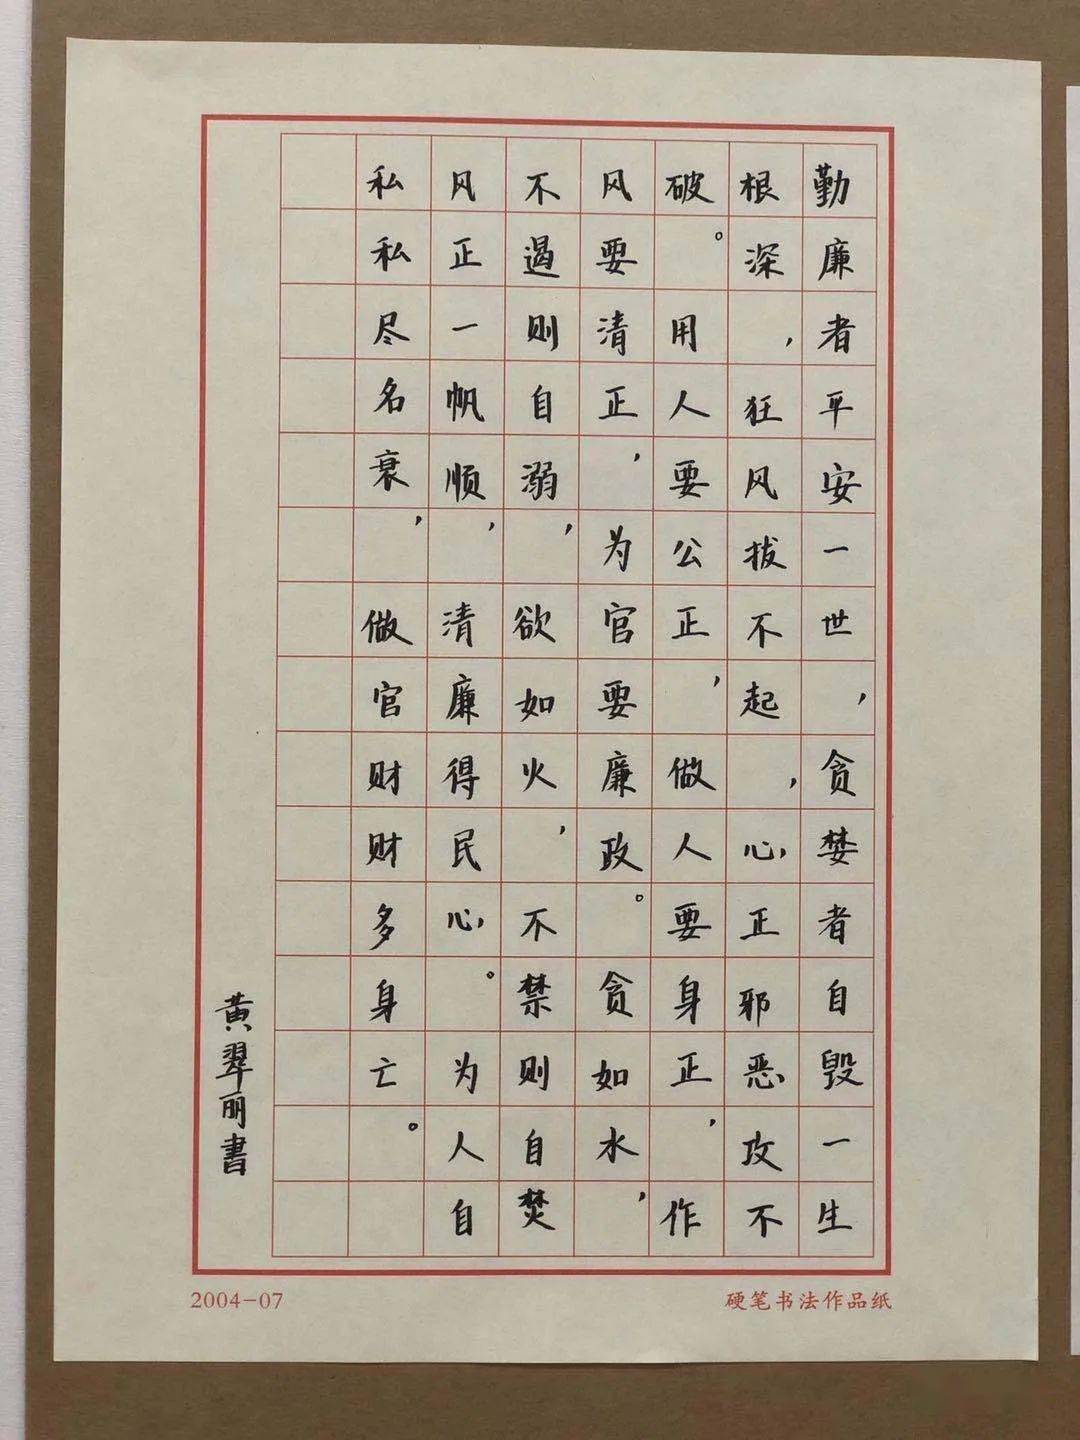 勤廉者平安一世，贪婪者自毁一生
根深，狂风拔不起，心正邪恶攻不
破。用人要公正，做人要身正，作
风要清正，为官要廉政。贪如水，
不遏则自溺，欲如火，不禁则自焚
风正一帆顺，清廉得民心。为人自
私私尽名衰，做官财财多身亡。
黄翠丽書
2004-07
硬笔书法作品纸